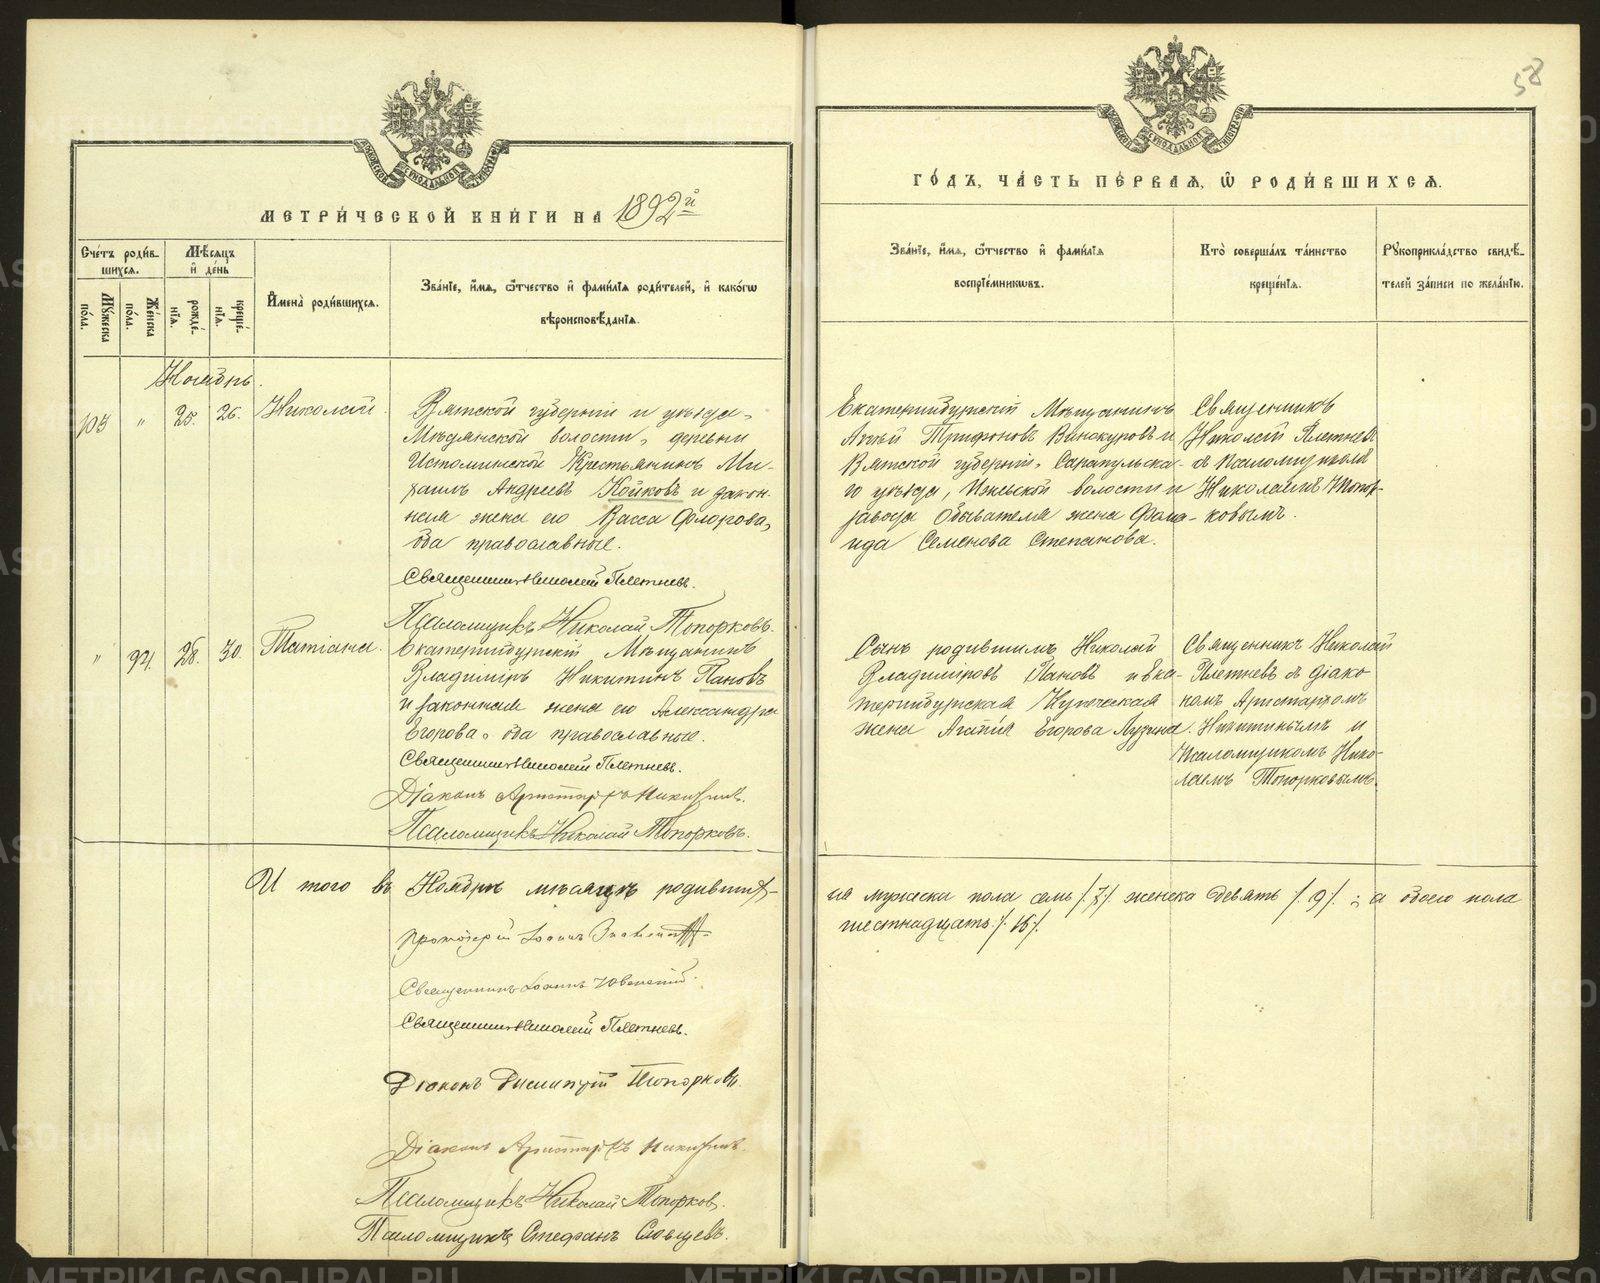 58
МЕТРИ́ЧЕСКОЙ КНИ́ГИ НА 1892й
ГО́ДЪ, ЧА́СТЬ ПЕ́РВАЯ, Ѡ РОДИ́ВШИХСЯ.
Сче́тъ роди́в-
шихся.
Мѣсяцъ
и҆ де́нь
Мꙋ́жеска
по́ла.
Же́нска
по́ла.
рожде́-
нїя.
креще́-
нїя.
И҆мена̀ роди́вшихся.
Зва́нїе, и҆́мя, ѻ҆́тчество и҆ фами́лїя роди́телей, и҆ како́гѡ
вѣроисповѣ́данїя.
Зва́нїе, и҆́мя, ѻ҆́тчество и҆ фами́лїя
воспрїе́мникѡвъ.
Кто̀ соверша́лъ та́инство
креще́нїя.
Рꙋкоприкла́дство свидѣ́-
телей за́писи по жела́нїю.
Ноябрь.
103 " 25. 26. Николай.
Вятской губерніи и уѣзда,
Мѣдянской волости, деревни
Истоминской Крестьянинъ Ми-
хаилъ Андреевъ Койковъ и закон-
ная жена его Васса Флорова,
оба православные.
Священникъ Николай Плетневъ.
Псаломщикъ Николай Топорковъ.
Екатеринбургскій Мѣщанинъ
Агѣй Трифоновъ Винокуровъ и
Вятской губерніи, Сарапульска-
го уѣзда, Ижевской волости и
завода Обывателя жена Фаи-
ида Семенова Степанова.
Священникъ
Николай Плетневъ
съ Псаломщикомъ
Николаемъ Топор-
ковымъ.
" 94. 28. 30. Татіана.
Екатеринбургскій Мѣщанинъ
Владиміръ Никитинъ Пановъ
и законная жена его Александра
Егорова, оба православные.
Священникъ Николай Плетневъ.
Діаконъ Аристархъ Никитинъ.
Псаломщикъ Николай Топорковъ.
Сынъ родившимъ Николай
Владиміровъ Пановъ и Ека-
теринбургская Купеческая
жена Агапія Егорова Лузина.
Священникъ Николай
Плетневъ съ діако-
номъ Аристархомъ
Никитинымъ и
Псаломщикомъ Нико-
лаемъ Топорковымъ.
И того въ Ноябрѣ мѣсяцѣ родивших-
ся мужеска пола семь /.7/. женска девять /.9/. ; а обоего пола
шестнадцать /.16/.
Протоіерей Іоаннъ
Священникъ Іоаннъ
Священникъ Николай Плетневъ.
Діаконъ Топорковъ.
Діаконъ Аристархъ Никитинъ.
Псаломщикъ Николай Топорков.
Псаломщикъ Стефанъ Словцевъ.